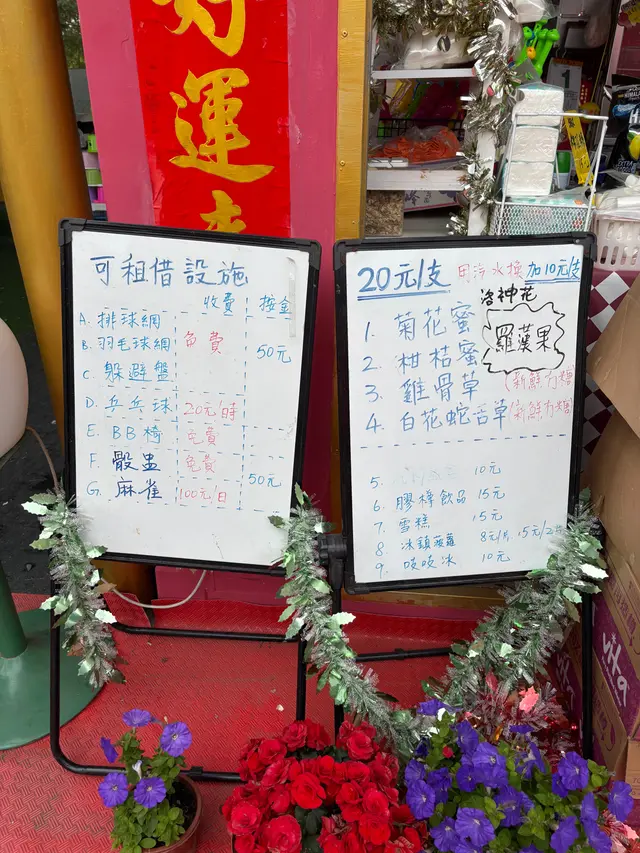 好
運
來
可租借設施
收費 按金
A. 排球網
B. 羽毛球網 免費 50元
C. 躲避盤
D. 乒乓球 20元/時
E. BB椅 免費
F. 骰盅 免費 50元
G. 麻雀 100元/日
20元/支 用汽水換 加10元/支
洛神花
羅漢果
1. 菊花蜜
2. 柑桔蜜
3. 雞骨草
4. 白花蛇舌草
5. 10元
6. 膠樽飲品 15元
7. 雪糕 15元
8. 冰鎮菠蘿 8元/片, 15元/2片
9. 吱吱冰 10元
vita